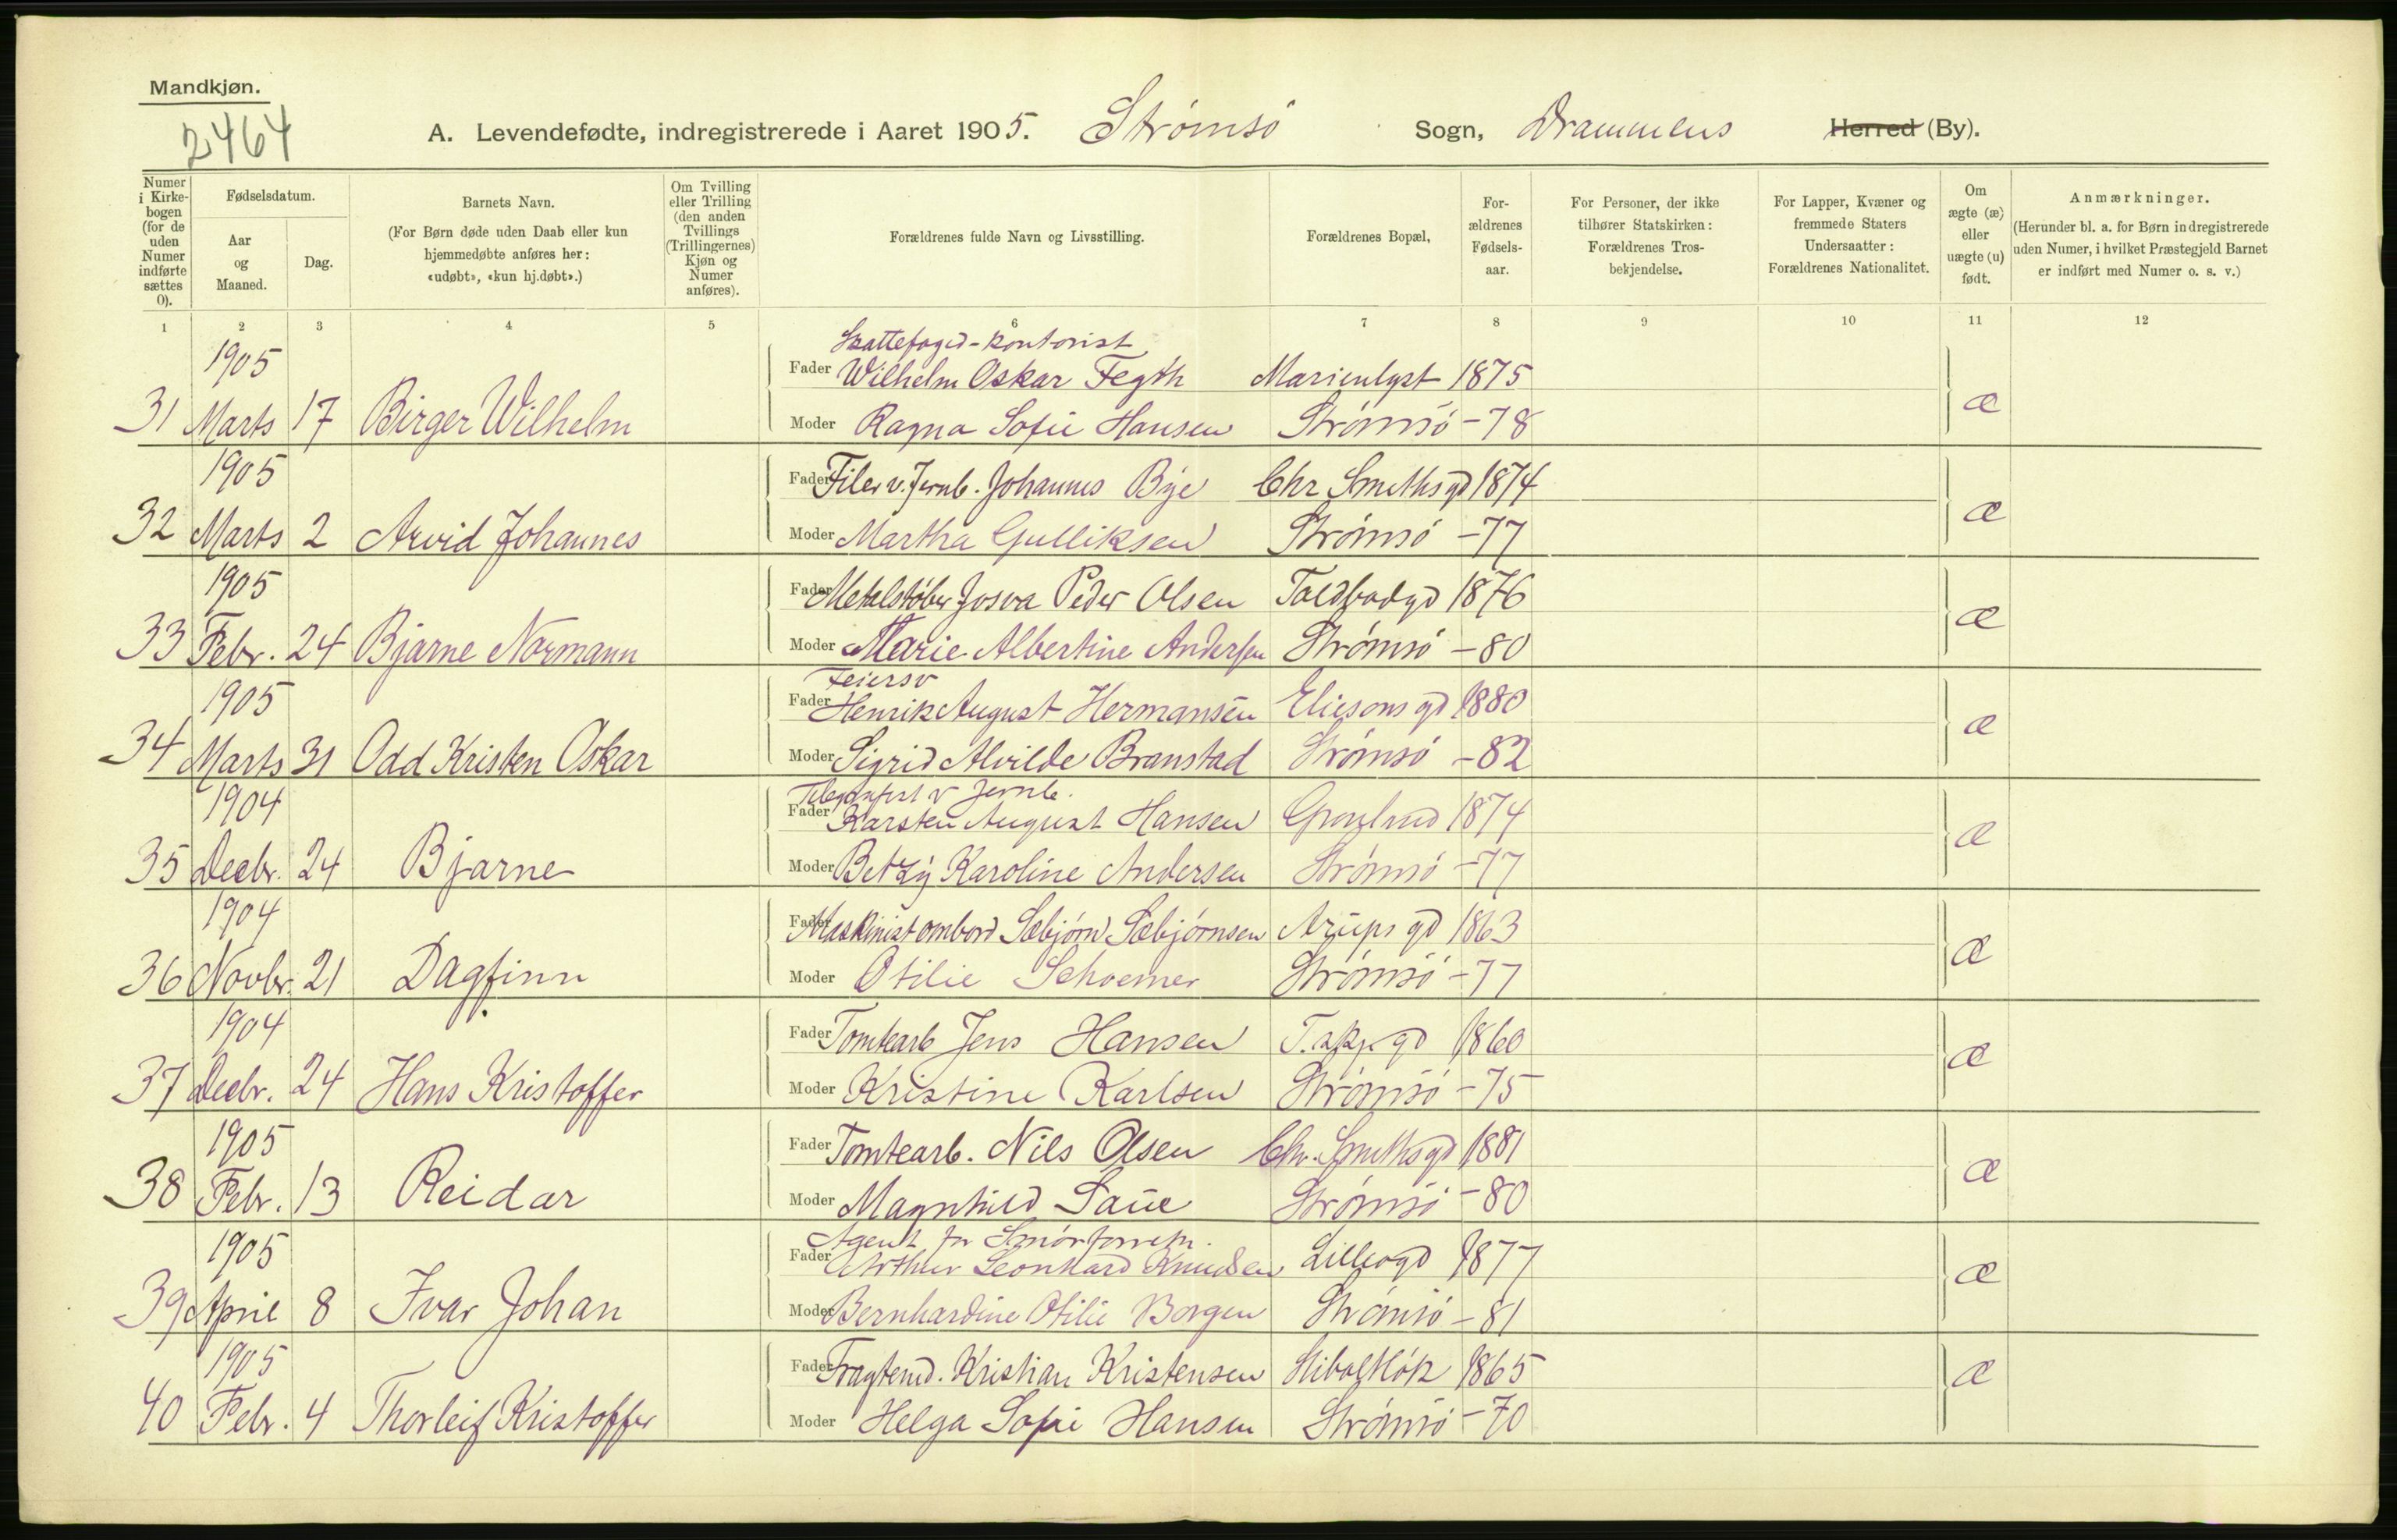 Mandkjøn.
2464
A. Levendefødte, indregistrerede i Aaret 1905. Strømsö Sogn, Drammens Herred (By).
Numer i Kirkebogen (for de uden Numer indførte sættes 0).
Fødselsdatum.
Aar og Maaned.
Dag.
Barnets Navn.
(For Børn døde uden Daab eller kun hjemmedøbte anføres her: «udøbt», «kun hj.døbt».)
Om Tvilling eller Trilling (den anden Tvillings (Trillingernes) Kjøn og Numer anføres).
Forældrenes fulde Navn og Livsstilling.
Forældrenes Bopæl,
Forældrenes Fødselsaar.
For Personer, der ikke tilhører Statskirken: Forældrenes Trosbekjendelse.
For Lapper, Kvæner og fremmede Staters Undersaatter: Forældrenes Nationalitet.
Om ægte (æ) eller uægte (u) født.
Anmærkninger.
(Herunder bl. a. for Børn indregistrerede uden Numer, i hvilket Præstegjeld Barnet er indført med Numer o. s. v.)
1 2 3 4 5 6 7 8 9 10 11 12
Skattefoged-kontorist
1905 Fader Wilhelm Oskar Fegth Marienlyst 1875
31 Marts 17 Birger Wilhelm Moder Ragna Sofie Hansen Strømsö -78 æ
1905 Fader Filer v. Jernb. Johannes Bye Chr Smethsgd 1874
32 Marts 2 Arvid Johannes Moder Martha Gulliksen Strømsö -77 æ
1905 Fader Metalstöber Josva Peder Olsen Toldbodgd 1876
33 Febr. 24 Bjarne Normann Moder Marie Albertine Andersen Strømsö -80 æ
Feiersv
1905 Fader Henrik August Hermansen Eliesons gd 1880
34 Marts 31 Odd Kristen Oskar Moder Sigrid Alvilde Branstad Strömsö -82 æ
Telegrafist v Jernb.
1904 Fader Karsten August Hansen Grønland 1874
35 Decbr. 24 Bjarne Moder Betzy Karoline Andersen Strömsö -77 æ
1904 Fader Maskinist ombord Sæbjörn Sæbjörnsen Arups gd 1863
36 Novbr. 21 Dagfinn Moder Otilie Schoemer Strömsö -77 æ
1904 Fader Tomtearb Jens Hansen gd 1860
37 Decbr. 24 Hans Kristoffer Moder Kristine Karlsen Strömsö -75 æ
1905 Fader Tomtearb. Nils Olsen Chr. Smethsgd 1881
38 Febr. 13 Reidar Moder Magnhild Saue Strömsö -80 æ
Agent for Smörforretn.
1905 Fader Arthur Leonhard Knudsen Lillegd 1877
39 April 8 Ivar Johan Moder Bernhardine Otilie Borgen Strömsö -81 æ
1905 Fader Fragtemd. Kristian Kristensen 1865
40 Febr. 4 Thorleif Kristoffer Moder Helga Sofie Hansen Strömsö -70 æ